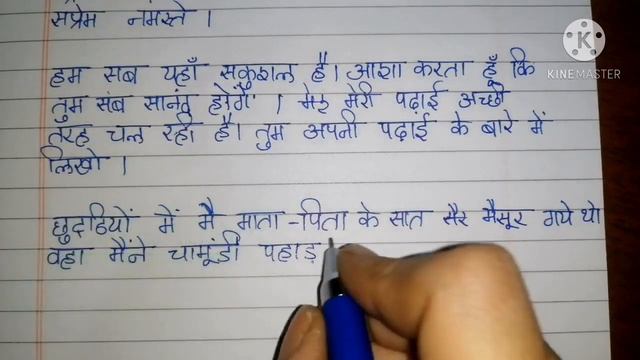 सप्रेम नमस्ते ।
हम सब यहाँ सकुशल है। आशा करता हूँ कि
तुम संब सानंद होगें । मेरे मेरी पढ़ाई अच्छी
तरह चल रही है। तुम अपनी पढ़ाई के बारे में
लिखो ।
छुदठियों में मै माता-पिता के सात सैर मैसूर गये थे।
वहा मैंने चामूंडी पहाड़
KINEMASTER